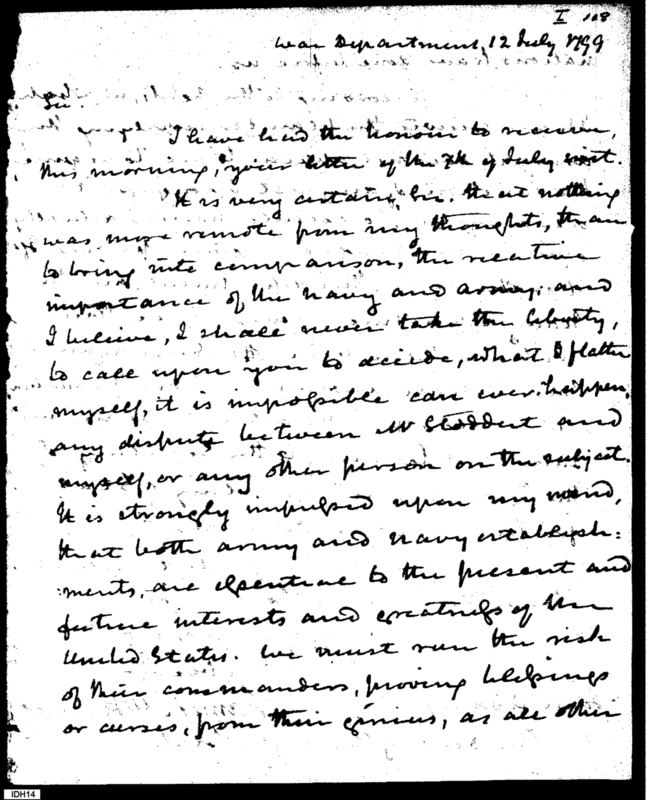 I 108
War Department, 12 July 1799
Sir.
I have had the honour to receive,
this morning, your letter of the 7th of July inst.
It is very certain, Sir. that nothing
was more remote from my thoughts, than
to bring into comparison, the relative
importance of the navy and army; and
I believe, I shall never take the liberty,
to call upon you to decide, what I flatter
myself, it is impossible can ever happen,
any dispute between Mr Stoddert and
myself, or any other person on the subject.
It is strongly impressed upon my mind,
that both army and navy establish:
ments, are essential to the present and
future interests and greatness of the
United States. We must run the risk
of their commanders, proving blessings
or curses, from their genius, as all other
IDH14